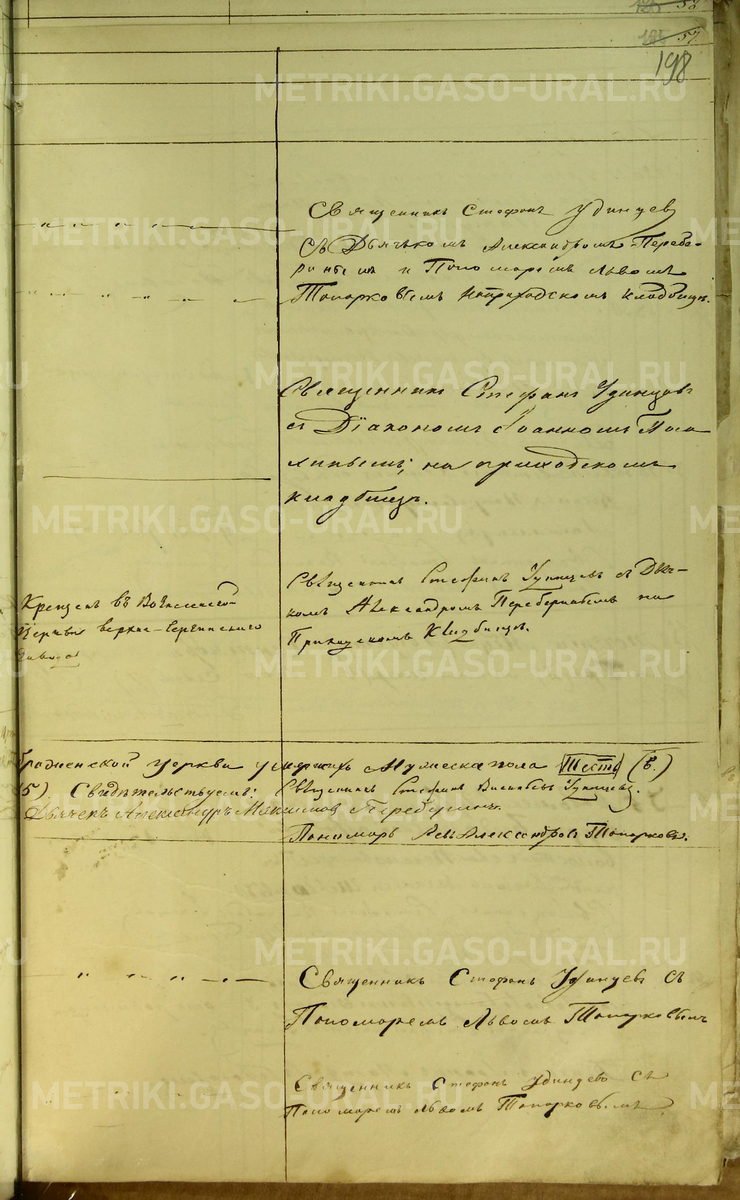 198
Священникъ Стефанъ Удинцев
съ Дьячкомъ Александромъ Перебе-
ринымъ и Пономаремъ Львомъ
Топорковымъ на приходскомъ кладбищѣ.
Священникъ Стефанъ Удинцовъ
съ Діакономъ Іоанномъ
на приходскомъ
кладбищѣ.
Священникъ Стефанъ Удинцевъ съ Дья-
комъ Александромъ Переберинымъ на
Приходскомъ Кладбищѣ.
Крещенъ въ
Церкви верхне-Сергинскаго
Завода
браженской Церкви умершихъ Мужеска пола Шесть (6.)
5). Свидѣтельствуемъ: Священникъ Стефанъ Удинцевъ.
Дьячекъ Александръ Максимов Переберинъ.
Пономарь Левъ Александровъ Топорковъ.
Священникъ Стефанъ Удинцевъ съ
Пономаремъ Львомъ Топорковымъ
Священникъ Стефанъ Удинцевъ съ
Пономаремъ Львомъ Топорковымъ
METRIKI.GASO-URAL.RU